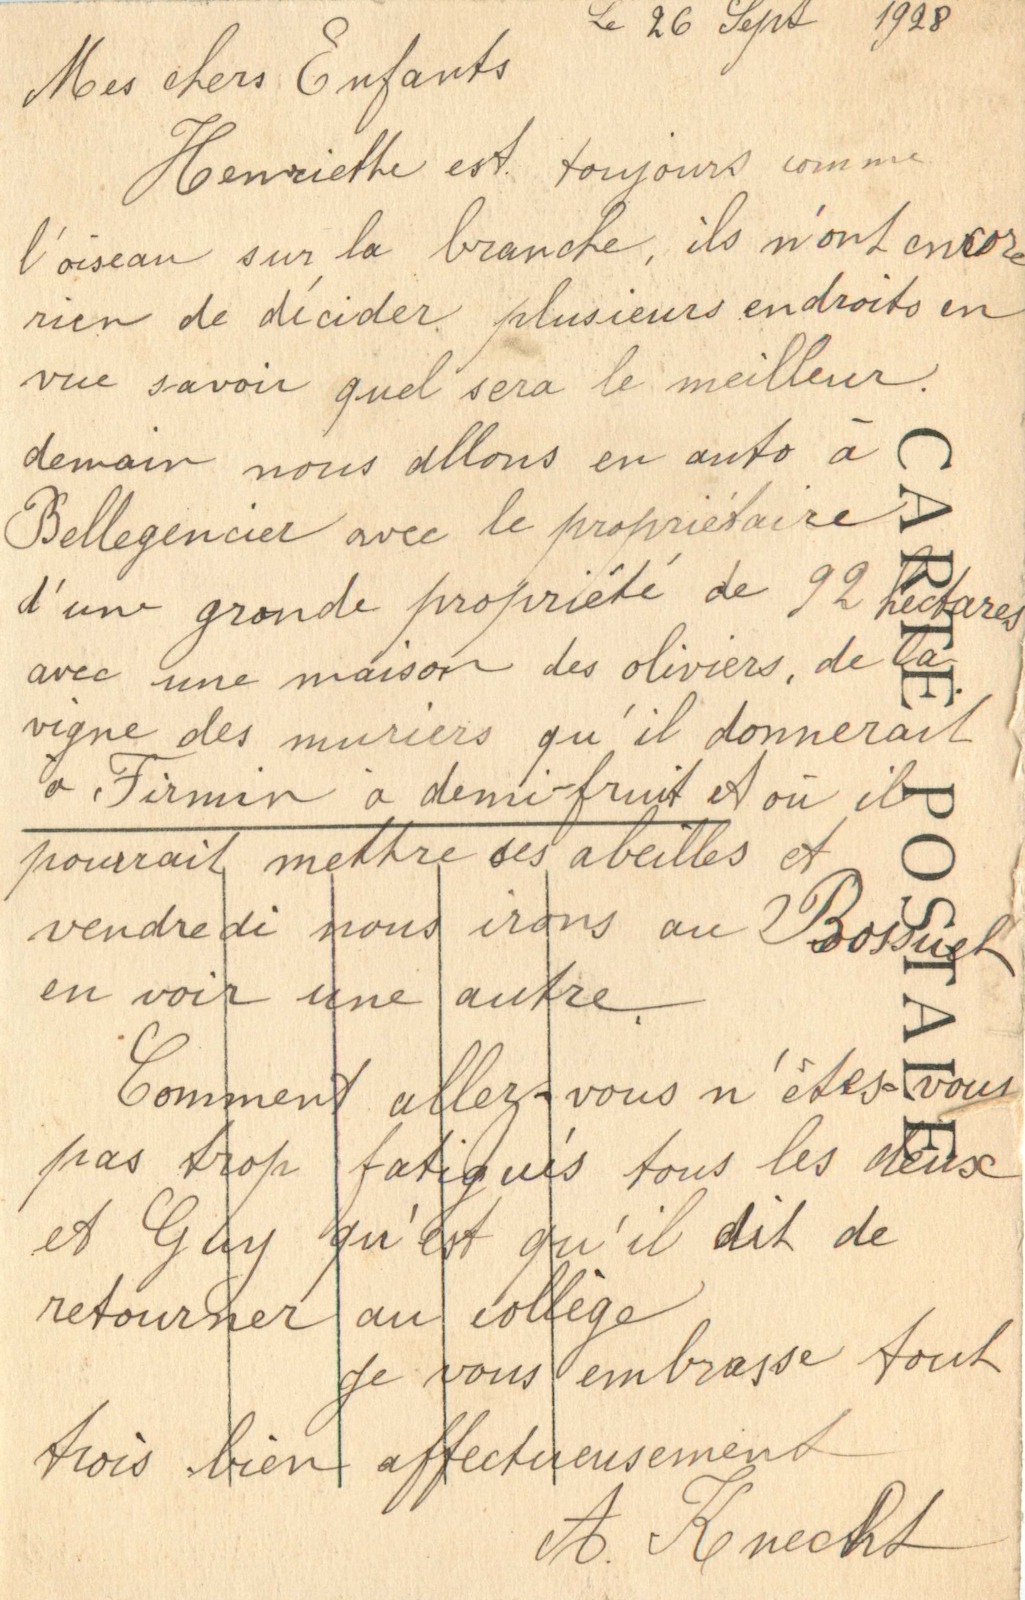 Le 26 Sept 1928
Mes chers Enfants
Henriethe est toujours comme
l'oiseau sur la branche, ils n'ont encore
rien de décider plusieurs endroits en
vue savoir quel sera le meilleur.
demain nous allons en auto à
Bellegencier avec le propriétaire
d'une grande propriété de 92 hectares
avec une maison des oliviers, de la
vigne des muriers qu'il donnerait
à Firmin à demi-fruit et où il
pourrait mettre ses abeilles et
vendredi nous irons au Bossuet
en voir une autre.
Comment allez-vous n'êtes-vous
pas trop fatigués tous les deux
et Guy qu'est qu'il dit de
retourner au collège
Je vous embrasse tout
trois bien affectueusement
A. Knecht
CARTE POSTALE